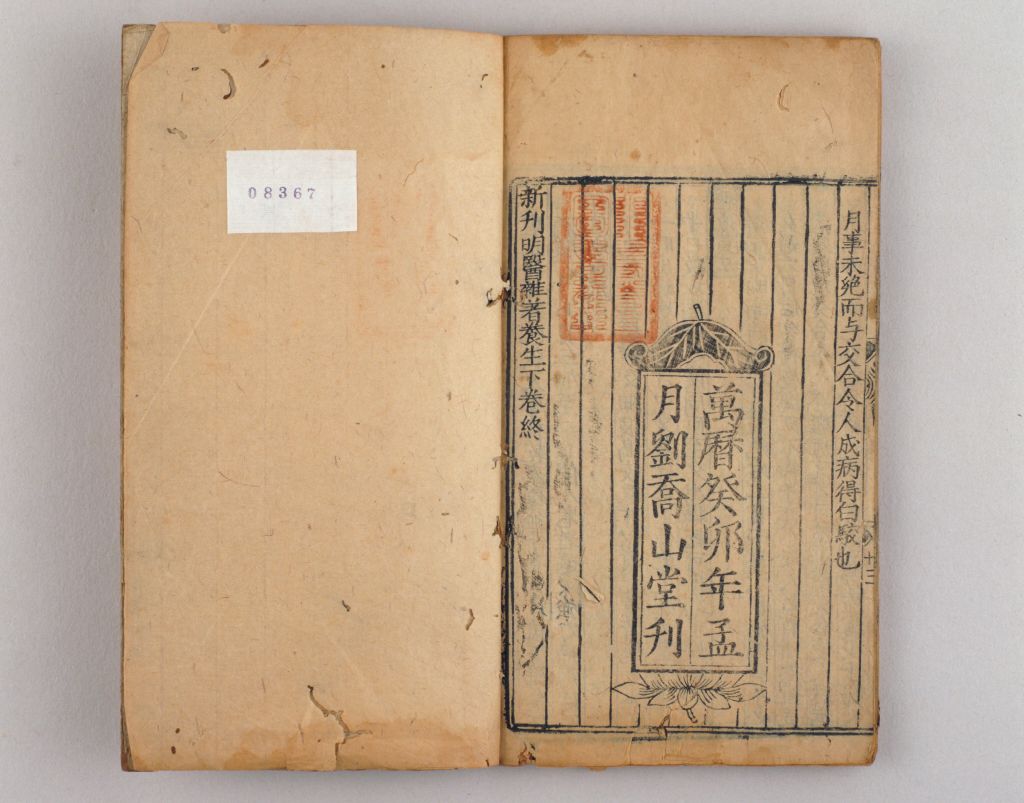 08367
月事未絶而与交合令人成病得白駁也
十三
萬曆癸卯年孟
月劉喬山堂刋
新刋明醫雜著養生下卷終